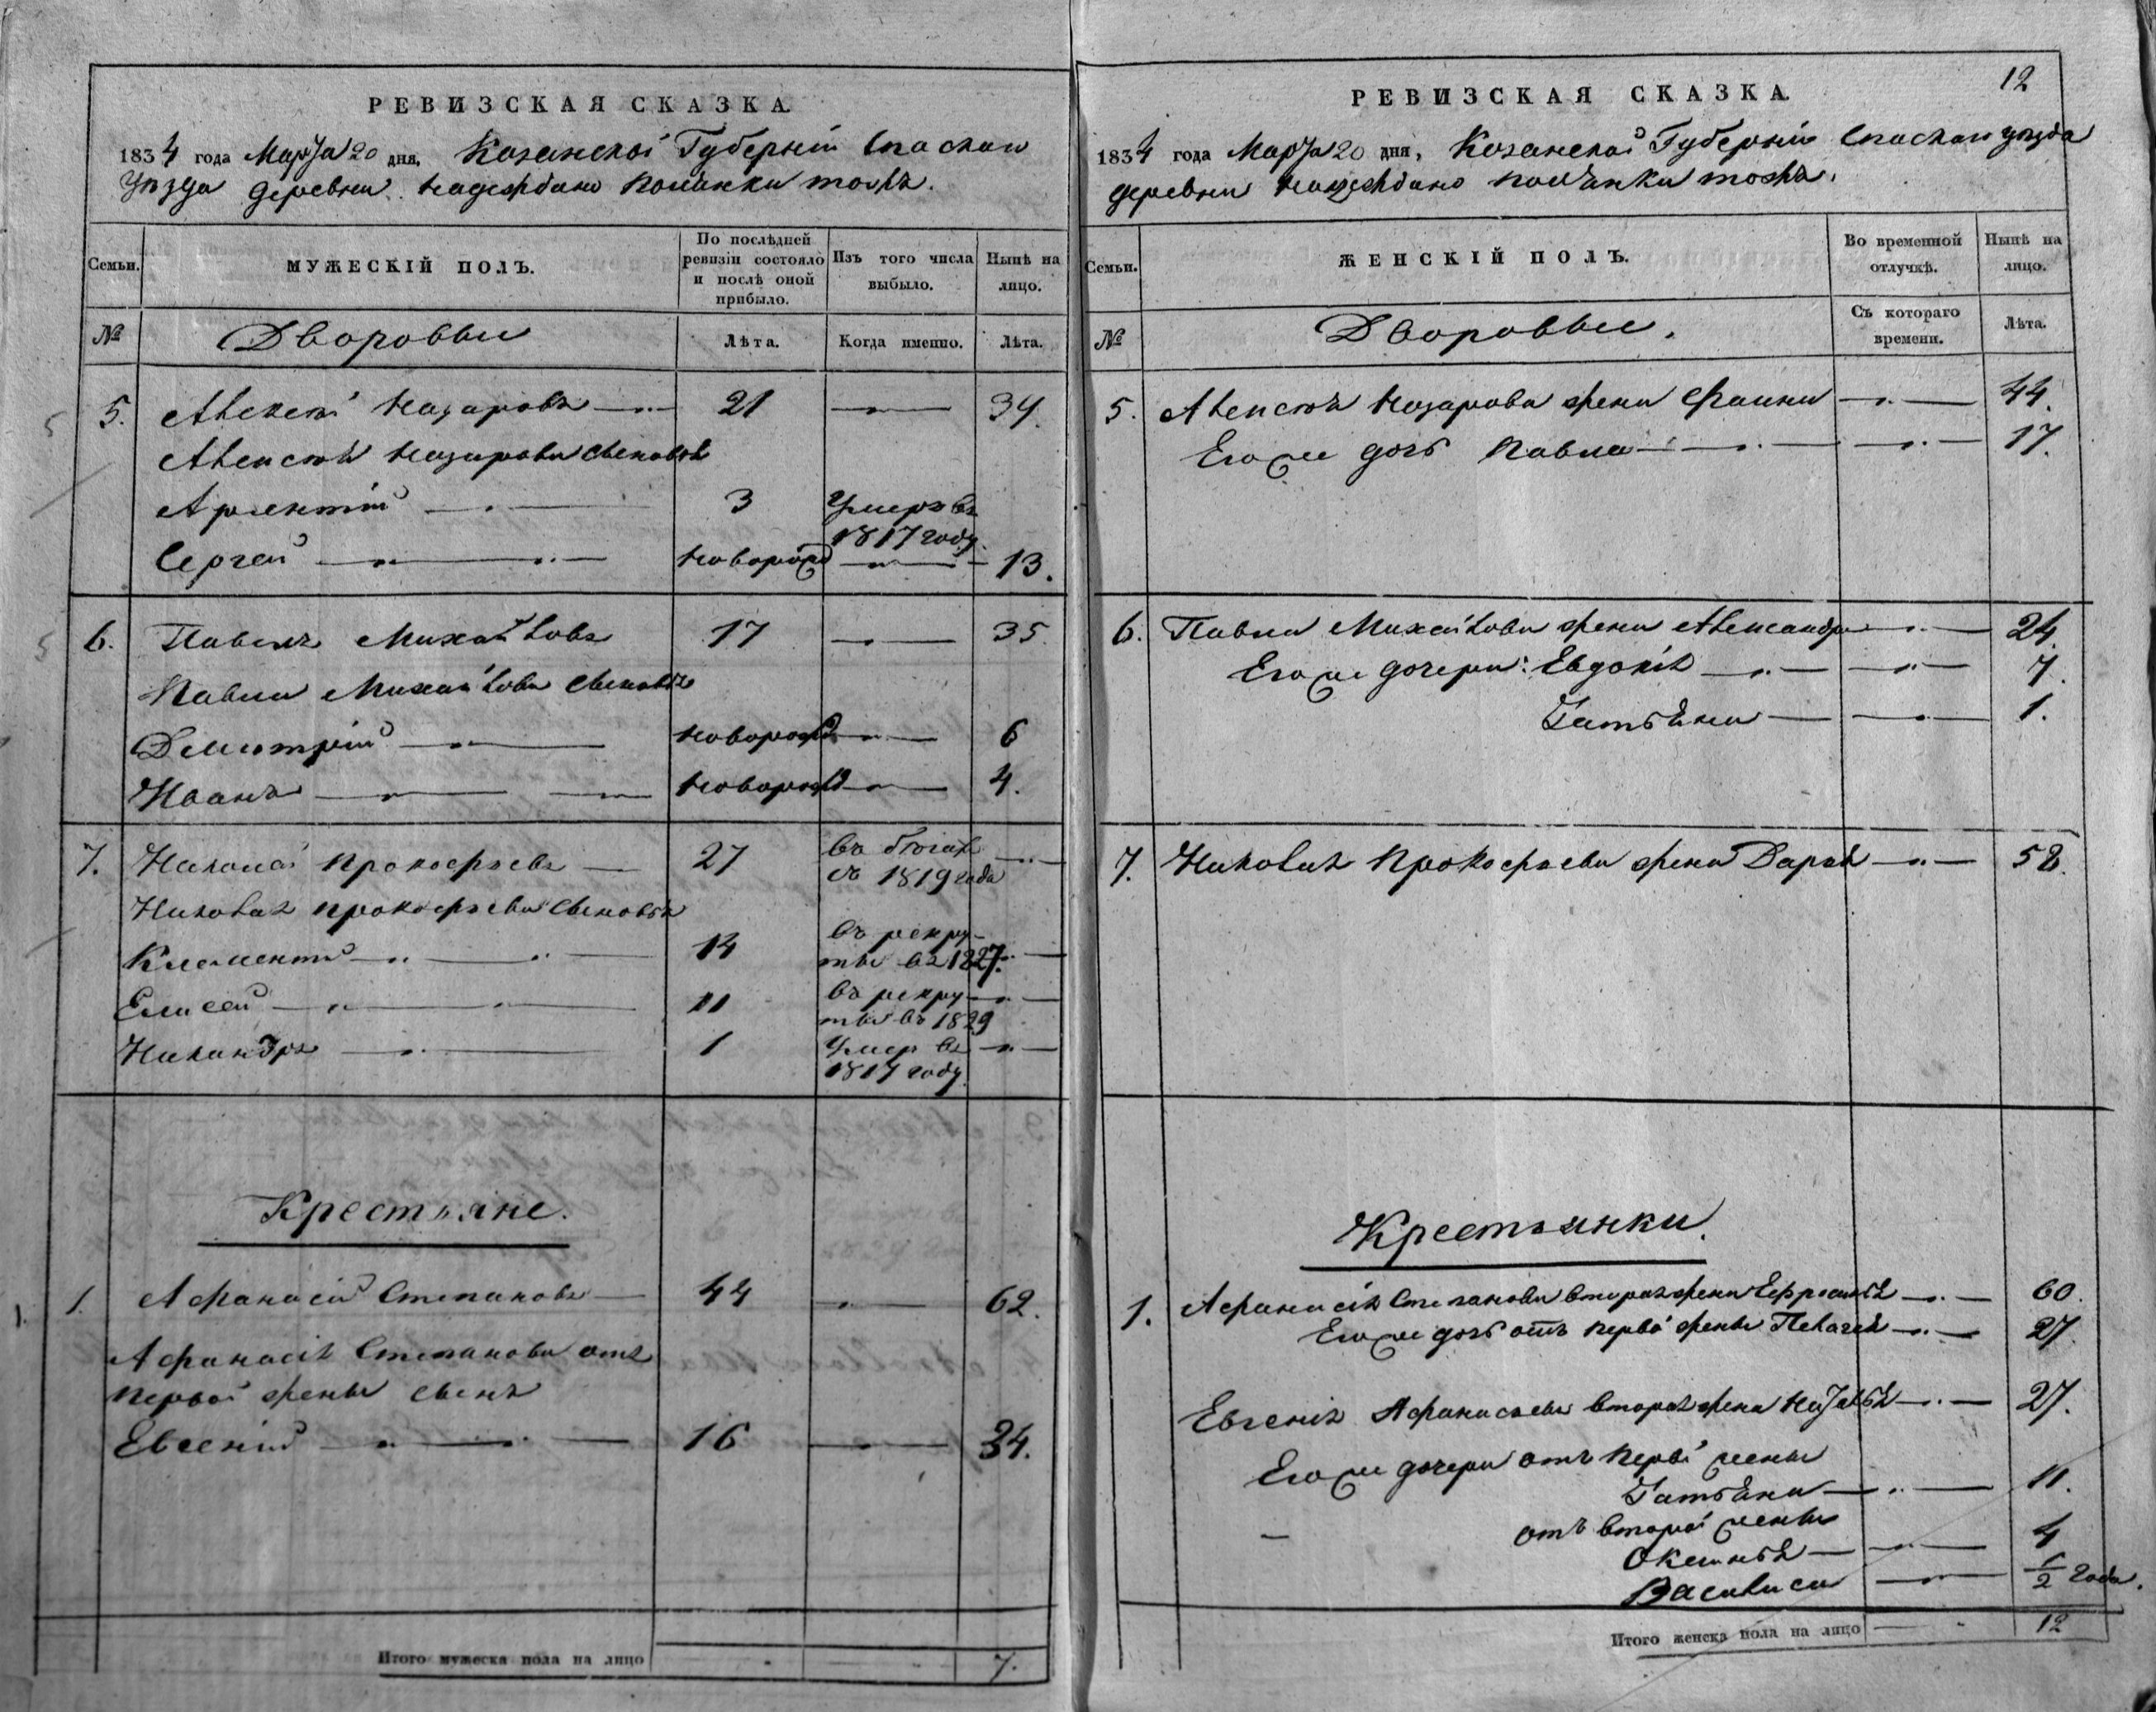 РЕВИЗСКАЯ СКАЗКА.
1834 года Марта 20 дня, Казанской Губерніи Спаскаи
уѣзда деревни
Семьи.
МУЖЕСКІЙ ПОЛЪ.
По послѣдней ревизіи состояло и послѣ оной прибыло.
Изъ того числа выбыло.
Нынѣ на лицо.
№
Дворовыи
Лѣта.
Когда именно.
Лѣта.
5. Алексѣй Назаровъ 21 34.
Алексѣя Назарова сыновья
3 Умеръ въ 1817 году.
Сергей новорожд 13.
6. Павелъ Михайловъ 17 35.
Павла Михайлова сыновья
Дмитрій новорожд 6
Иванъ новорожд 4.
7. Николай Прокофьевъ 27 въ бѣгахъ съ 1819 года
Николая Прокофьева сыновья
Клементій 14 въ рекруты въ 1827.
Елисей 11 въ рекруты въ 1829
Никандръ 1 Умеръ въ 1817 году.
Крестьяне.
1. Афанасій Степановъ 44 62.
Афанасія Степанова отъ
первой жены сынъ
Евгеній 16 34.
Итого мужеска пола на лицо 7.
12
РЕВИЗСКАЯ СКАЗКА.
1834 года Марта 20 дня, Казанской Губерніи Спаскаи уѣзда
деревни
Семьи.
ЖЕНСКІЙ ПОЛЪ.
Во временной отлучкѣ.
Нынѣ на лицо.
№
Дворовыи.
Съ котораго времени.
Лѣта.
5. Алексѣя Назарова жена 44.
Его же дочь Павла 17.
6. Павла Михайлова жена Александра 24.
Его же дочери: Евдокія 7.
Татьяна 1.
7. Николая Прокофьева жена Дарья 58.
Крестьянки.
1. Афанасія Степанова вторая жена Ефросинья 60.
Его же дочь отъ первой жены Пелагея 27.
Евгенія Афанасьева вторая жена Наталья 27.
Его же дочери отъ первой жены
Татьяна 11.
отъ второй жены
Оксинья 4
Василиса 1/2 года.
Итого женска пола на лицо 12